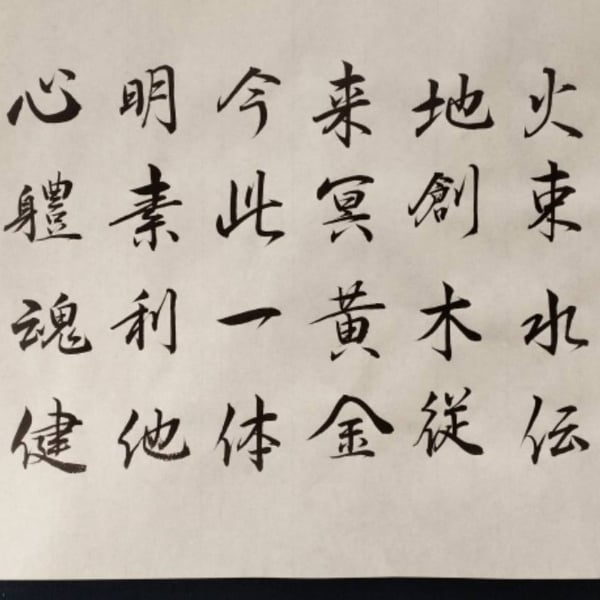 火束水伝
地創木従
来冥黄金
今此一体
明素利他
心軆魂健